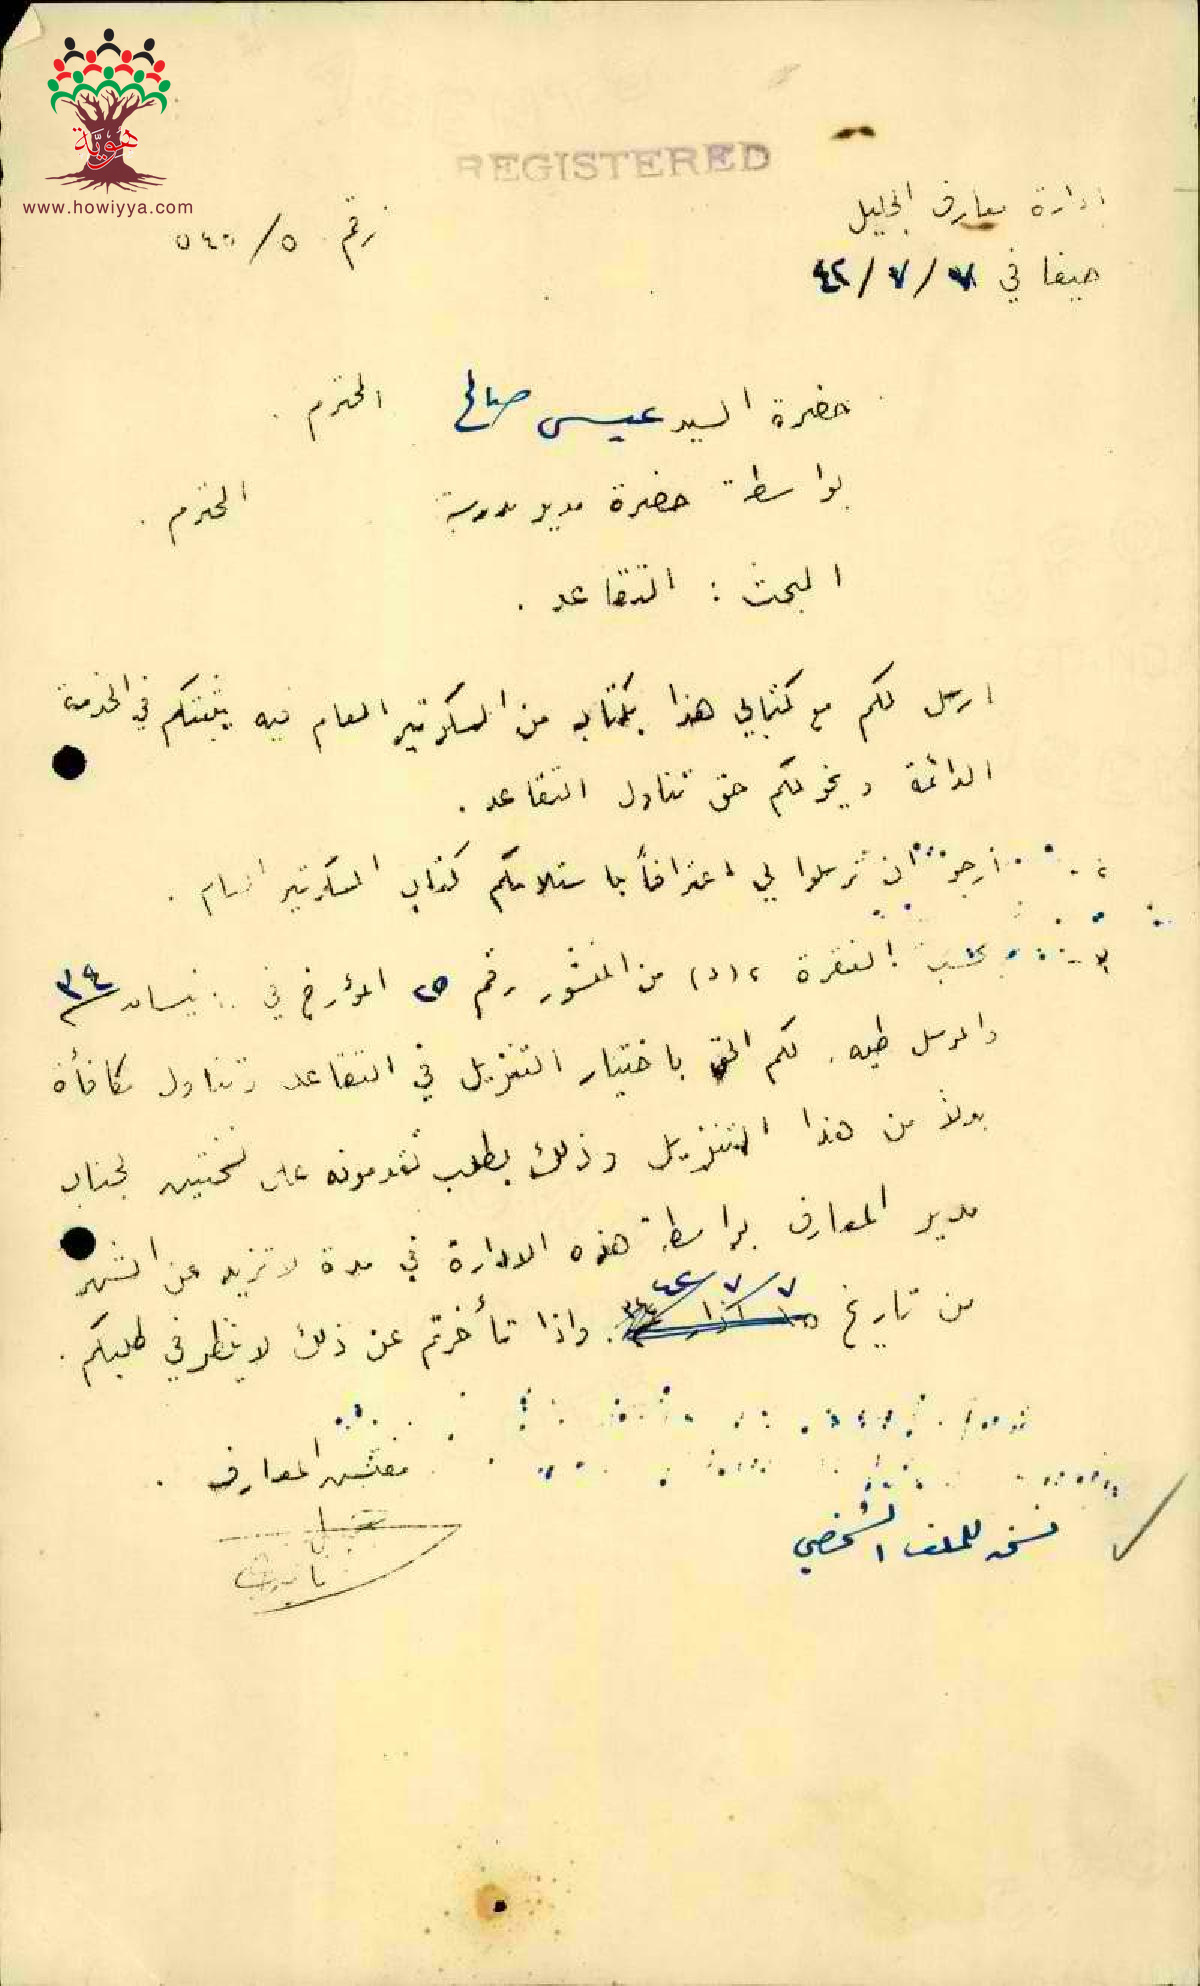 هوية
www.howiyya.com
REGISTERED
ادارة معارف الجليل
رقم ٥/٥٤٠
حيفا في ٧/٧/٤٢
حضرة السيد عيسى صالح المحترم .
بواسطة حضرة مدير مدرسة المحترم .
المبحث : التقاعد .
ارسل لكم مع كتابي هذا بكتاب من السكرتير العام فيه يثبتكم في الخدمة
الدائمة ويخولكم حق تناول التقاعد .
٢ . ارجو ان ترسلوا لي اعترافاً باستلامكم كتاب السكرتير العام .
٣ - بحسب الفقرة ٢ (د) من المنشور رقم ٢٥ المؤرخ في نيسان ٣٤
والمرسل طيه . لكم الحق باختيار التنزيل في التقاعد وتناول مكافأة
بدلاً من هذا التنزيل وذلك بطلب تقدمونه على نسختين لجناب
مدير المعارف بواسطة هذه الادارة في مدة لا تزيد عن الشهر
من تاريخ ٧/٧/٤٢ . واذا تأخرتم عن ذلك لا ينظر في طلبكم .
مفتش المعارف .
نسخة للملف الشخصي